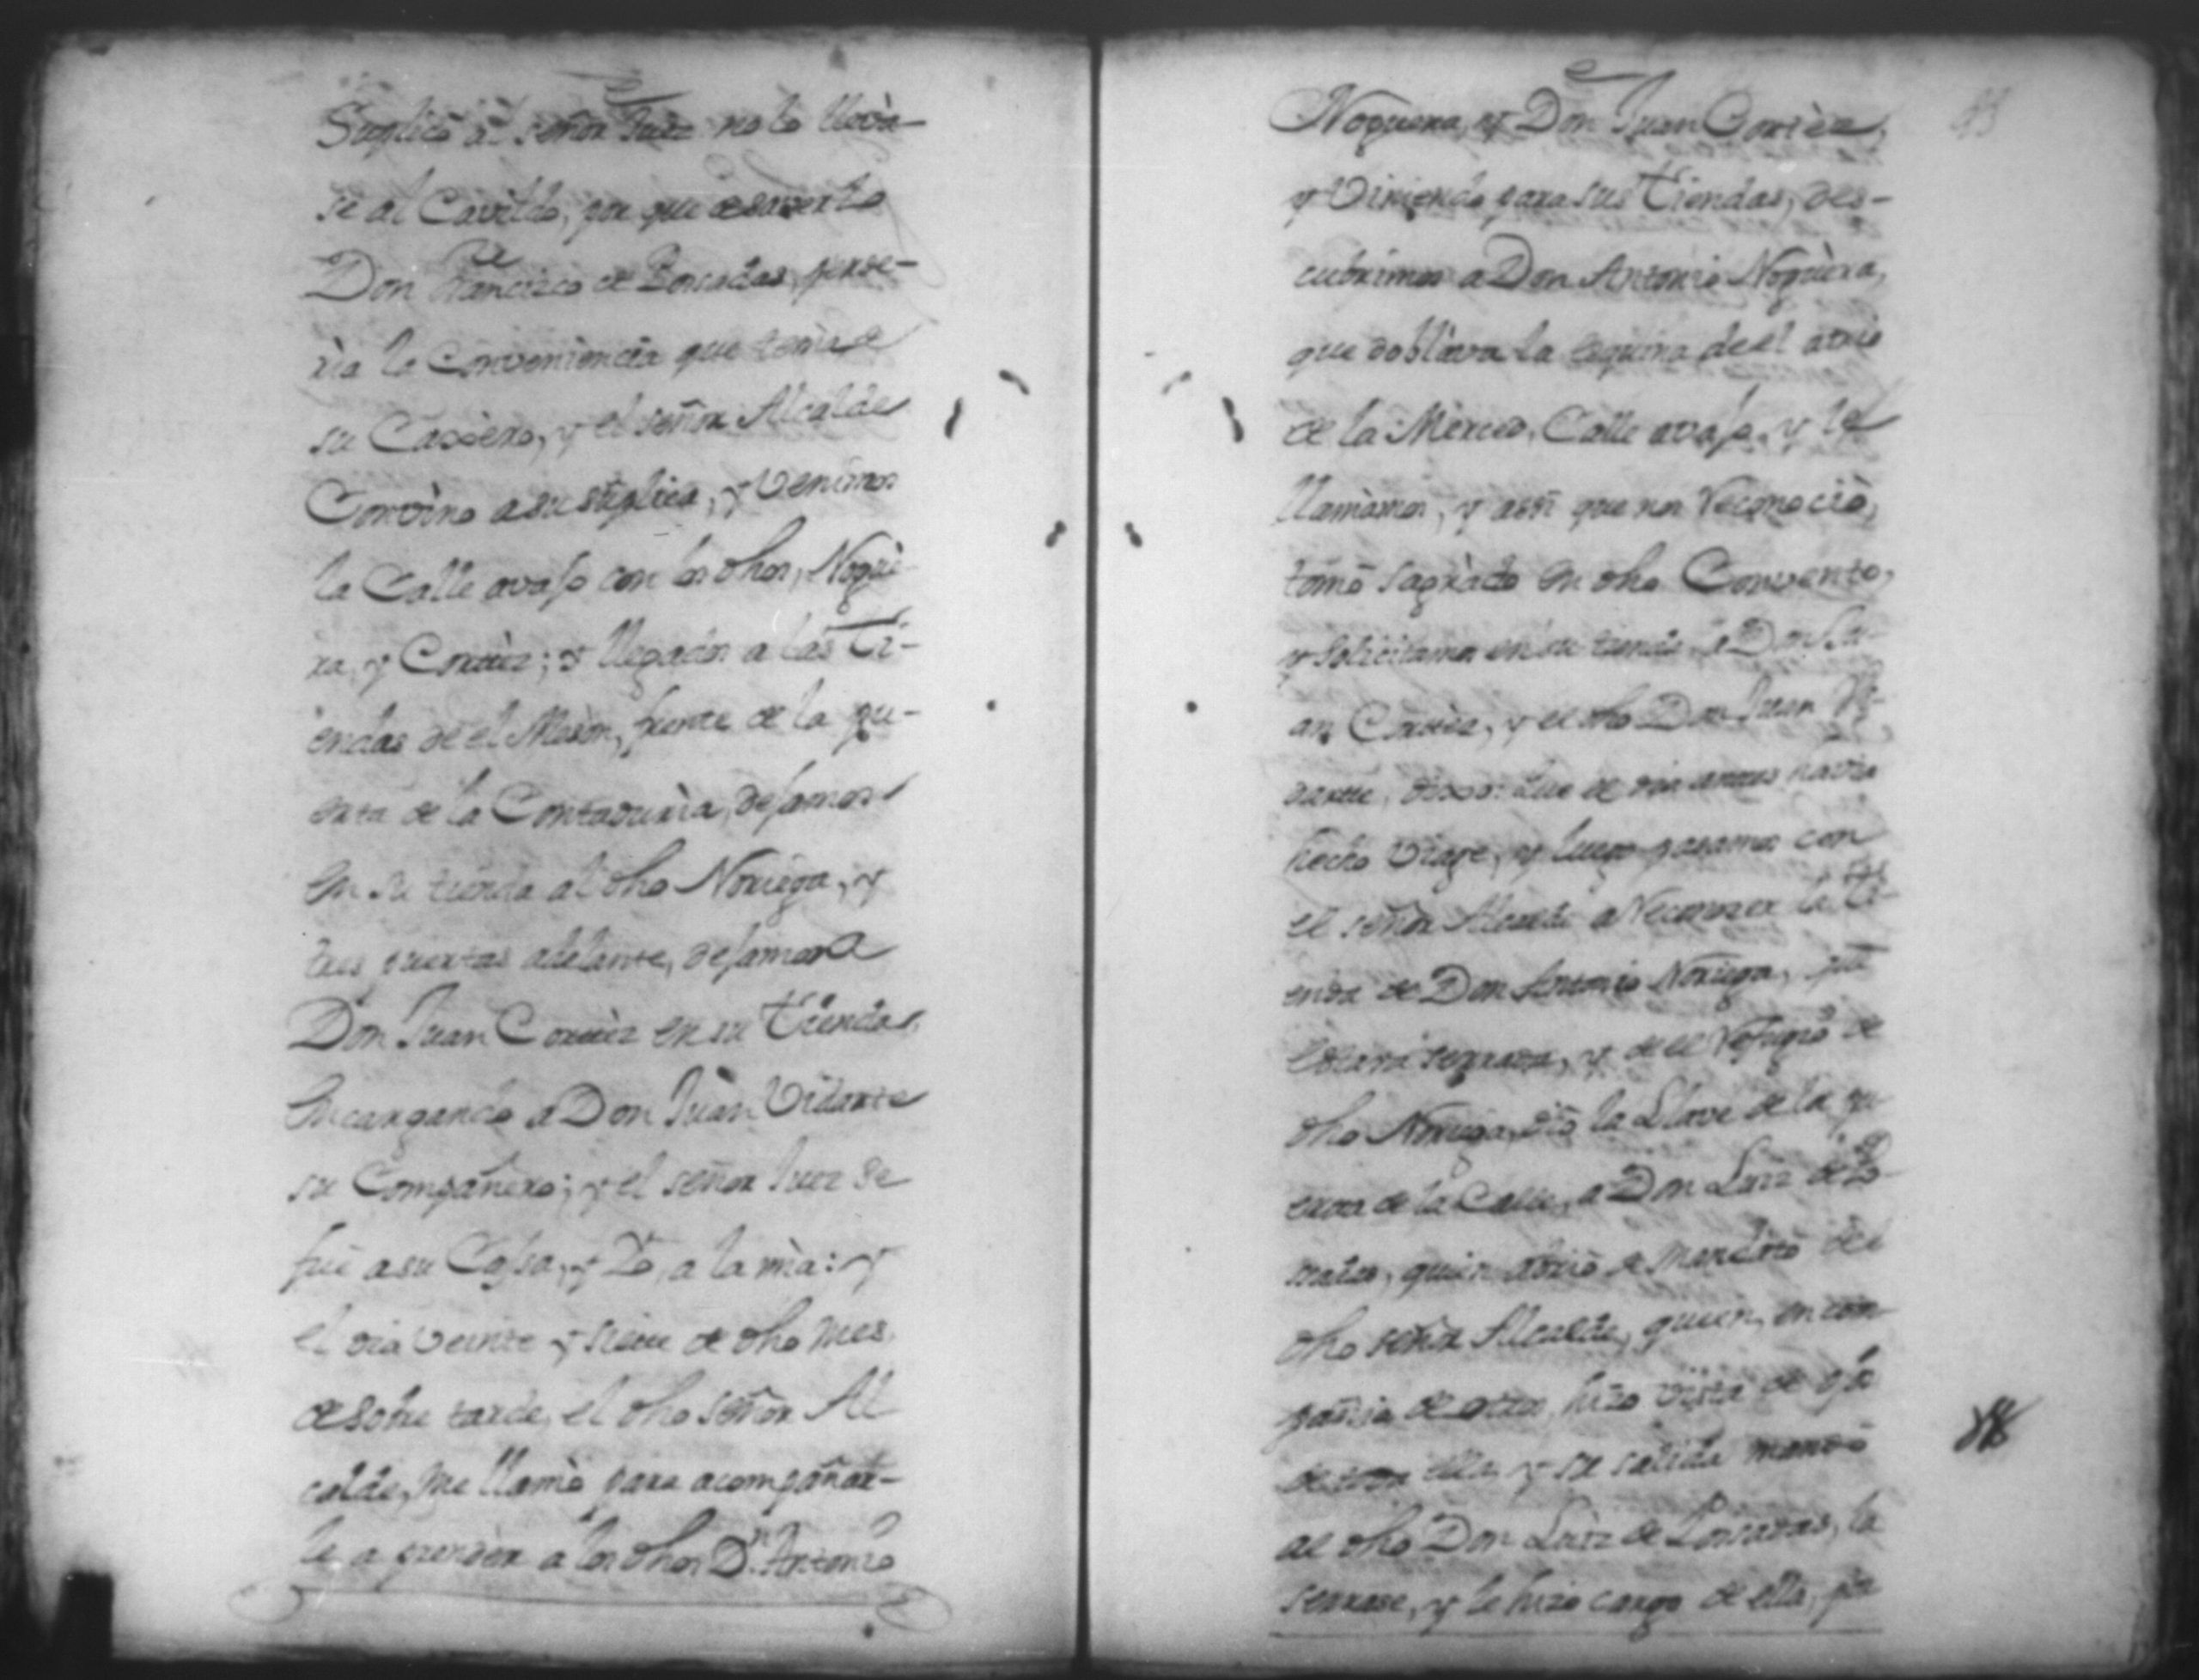 Suplicó al señor Juez no lo lleva-
se al Cavildo, por que de saverlo
Don Francisco de Losadas, perde-
ria la Conveniencia que tenia de
su Caxero, y el señor Alcalde
Convino a su suplica, y Venimos
la Calle avajo con los dhos, Nogue-
ra, y Cortèz; y llegados a las Ti-
endas de el Meson, frente de la pu-
erta de la Contaduria, dejamos
en su tienda al dho Noriega, y
tres puertas adelante, dejamos a
Don Juan Cortèz en su tienda,
encargando a Don Juan Vidarte
su Compañero; y el señor Juez se
fue a su Casa, y Yo, a la mia: y
el dia Veinte y siete de dho mes
de sobre tarde, el dho señor Al
calde, me llamó para acompañar-
le a prender a los dhos Dn. Antonio
Noguera, y Don Juan Cortèz,
y Viniendo para sus Tiendas, des-
cubrimos a Don Antonio Noguera,
que doblava la esquina de el atrio
de la Merced, Calle avajo, y le
llamamos, y assi que nos Reconoció,
tomó sagrado en dho Convento,
y solicitamos en su tienda, a Don Ju-
an Cortèz, y el dho Don Juan Vi-
darte, dixo: Que de dia antes havia
hecho Viage, y luego pasamos con
el señor Alcalde a Reconocer la Ti-
enda de Don Antonio Noriega, que
estava serrada, y de el Refugio de
dho Noriega, dió la Llave de la pu-
erta de la Calle, a Don Luiz de Lo-
sadas, quien abrió de mandato del
dho señor Alcalde, quien, en com-
pañia de otros, hizo Vista de
ella y su salida mandó
al dho Don Luiz de Losadas, la
serrase, y le hizo cargo de ella, por